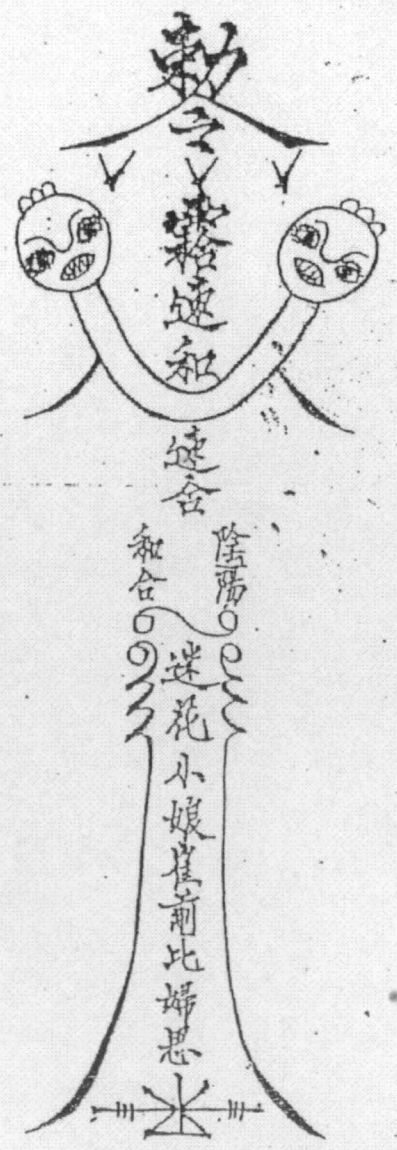 勅
令
速和
速合
陰陽
和合
迷花小娘崔前比婦思